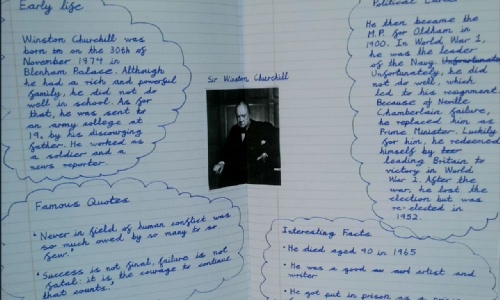 Early life
Winston Churchill was
born to on the 30th of
November 1874 in
Blenham Palace. Although
he had a rich and powerful
family, he did not do
well in school. As for
that, he was sent to
an army college at
19, by his discourging
father. He worked as
a soldier and a
news reporter.
Sir Winston Churchill
Political
He then became the
M.P. for Oldham in
1900. In World War 1,
he was the leader
of the Navy. Unfortunate
Unfortunately, he did
not do well, which
led to his resignment.
Because of Neville
Chamberlain failure,
he replaced him as
Prime Minister. Luckily
for him, he redeemed
himself by
leading Britain to
victory in World
War 2. After the
war, he lost the
election but was
re-elected in
1952.
Famous Quotes
• Never in field of human conflict was
so much owed by so many to so
few."
• Success is not final, failure is not
fatal: it is the courage to continue
that counts."
Interesting Facts
• He died aged 90 in 1965
• He was a good artist and
writer
• He got put in prison as a